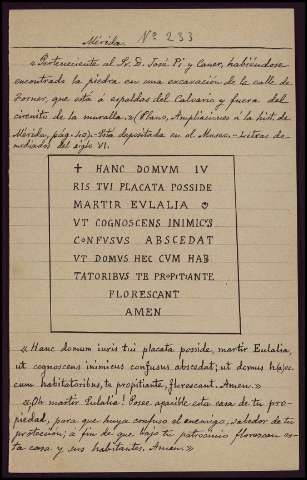 Mérida Nº 233
«Perteneciente al Sr. D. José Pí y Caner, habiéndose
encontrado la piedra en una excavación de la calle de
Forner, que está á espaldas del Calvario y fuera del
circuito de la muralla.» (Plano, Ampliaciones á la hist. de
Mérida, pág. 40).- Está depositada en el Museo.- Letras de
mediados del siglo VI.
+ HANC DOMVM IV
RIS TVI PLACATA POSSIDE
MARTIR EVLALIA
VT COGNOSCENS INIMICVS
CONFVSVS ABSCEDAT
VT DOMVS HEC CVM HAB
TATORIBVS TE PROPITIANTE
FLORESCANT
AMEN
«Hanc domum iuris tui placata posside, martir Eulalia,
ut cognoscens inimicus confusus abscedat; ut domus h(a)ec
cum habitatoribus, te propitiante, florescant. Amen.»
«Oh martir Eulalia! Posee apacible esta casa de tu pro-
piedad, para que huya confuso el enemigo, sabedor de tu
protección; á fin de que bajo tu patrocinio florezcan es-
ta casa y sus habitantes. Amen.»